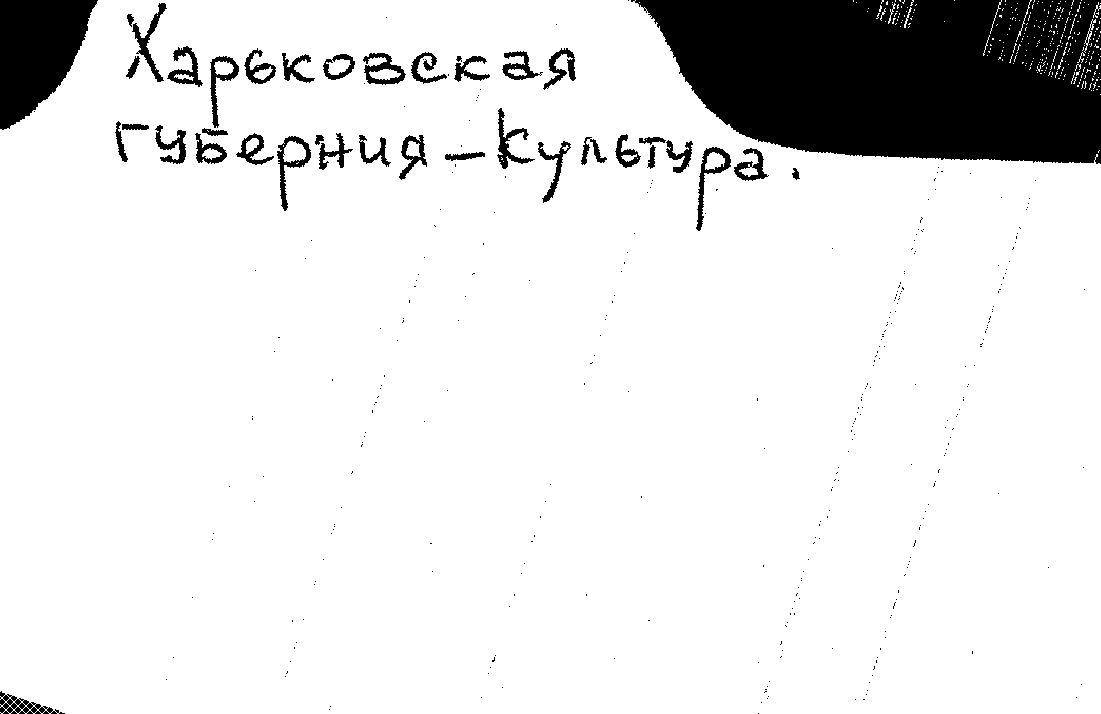 Харьковская
губерния – Культура.